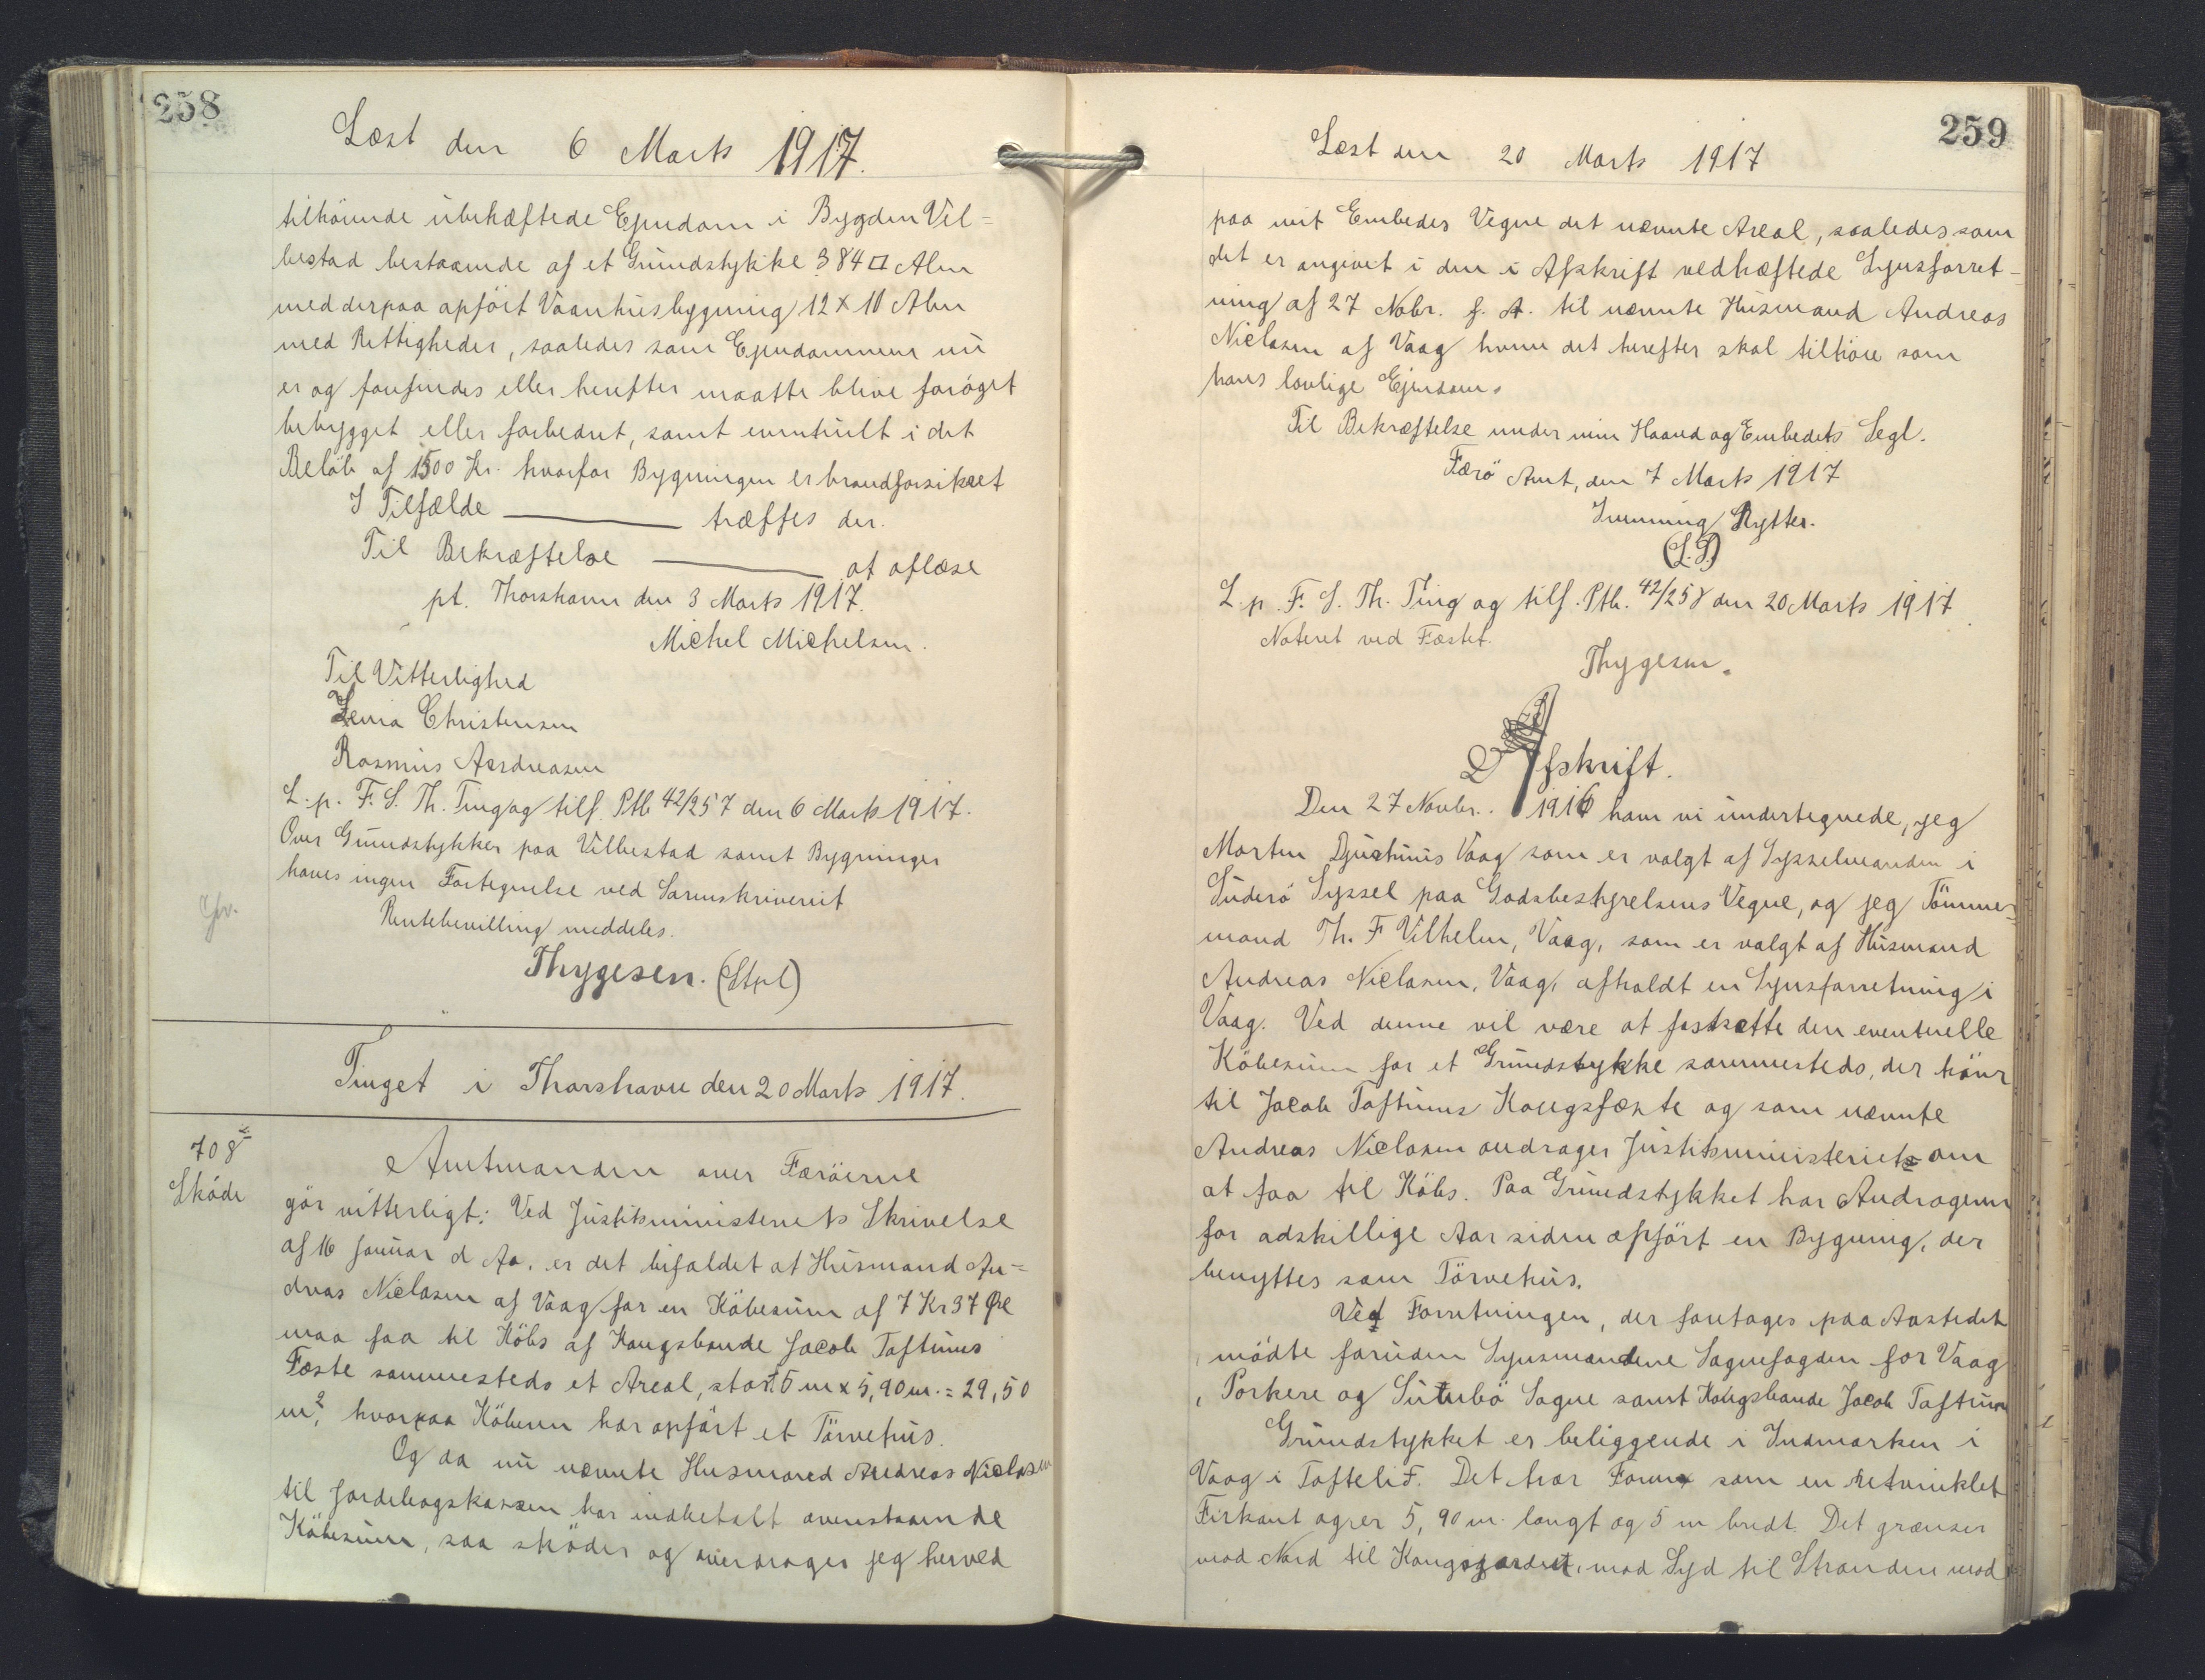 258
Læst den 6 Marts 1917.
tilhörende ubehæftede Ejendom i Bygden Vel=
bestad bestaaende af et Grundstykke 384 □ Alen
med derpaa opfört Vaanhusbygning 12 x 10 Alen
med Rettigheder, saaledes som Ejendommen nu
er og forefindes eller herefter maatte blive foröget
bebygget eller forbedret, samt eventuelt i det
Belöb af 1500 Kr. hvorfor Bygningen er brandforsikret
I Tilfælde ——— træffes der.
Til Bekræftelse ——— at aflæse
pt. Thorshavn den 3 Marts 1917.
Michel Michelsen.
Til Vitterlighed
Zenia Christensen
Rasmus Andreasen
L. p. F. S. Th. Ting og tilf. Ptb 42/257 den 6 Marts 1917.
Over Grundstykker paa Velbestad samt Bygninger
haves ingen Fortegnelse ved Sorenskriveriet
Rentebevilling meddeles.
Thygesen. (Stpl)
Tinget i Thorshavn den 20 Marts 1917.
708
Sköde
Amtmanden over Færöerne
gör vitterligt: Ved Justitsministeriets Skrivelse
af 16 Januar d Aa. er det bifaldet at Husmand An=
dreas Niclasen af Vaag for en Köbesum af 7 Kr 37 Øre
maa faa til Köbs af Kongsbonde Jacob Toftums
Fæste sammesteds et Areal, stort 5 m x 5,90 m. = 29,50
m², hvorpaa Köberen har opfört et Törvehus.
Og da nu nævnte Husmand Andreas Niclasen
til Jordebogskassen har indbetalt ovenstaaende
Köbesum, saa sköder og overdrager jeg herved
259
Læst den 20 Marts 1917
paa mit Embedes Vegne det nævnte Areal, saaledes som
det er angivet i den i Afskrift vedhæftede Synsforret-
ning af 27 Nobr. f. A. til nævnte Husmand Andreas
Niclasen af Vaag hvem det herefter skal tilhöre som
hans lovlige Ejendom.
Til Bekræftelse under min Haand og Embedets Segl.
Færö Amt, den 7 Marts 1917
Svenning Rytter.
(L.S.)
L. p. F. S. Th. Ting og tilf. Ptb. 42/258 den 20 Marts 1917
Noteret ved Fæstet.
Thygesen.
Afskrift.
Den 27 Novbr. 1916 have vi undertegnede, jeg
Morten Djurhuus Vaag som er valgt af Sysselmanden i
Suderö Syssel paa Godsbestyrelsens Vegne, og jeg Tömmer=
mand Th. F Vilhelm, Vaag, som er valgt af Husmand
Andreas Niclasen, Vaag, afholdt en Synsforretning i
Vaag. Ved denne vil være at fastsætte den eventuelle
Köbesum for et Grundstykke sammesteds, der hörer
til Jacob Toftums Kongsfæste og som nævnte
Andreas Niclasen andrager Justitsministeriet om
at faa til Köbs. Paa Grundstykket har Andrageren
for adskillige Aar siden opfört en Bygning, der
benyttes som Törvehus.
Ved Forretningen, der foretages paa Aastedet
mödte foruden Synsmændene Sognefogden for Vaag
, Porkere og Sumbö Sogne samt Kongsbonde Jacob Toftum
Grundstykket er beliggende i Indmarken i
Vaag i Toftelid. Det har Form som en retvinklet
Firkant og er 5,90 m. langt og 5 m bredt. Det grænser
mod Nord til Kongsjordet, mod Syd til Stranden mod